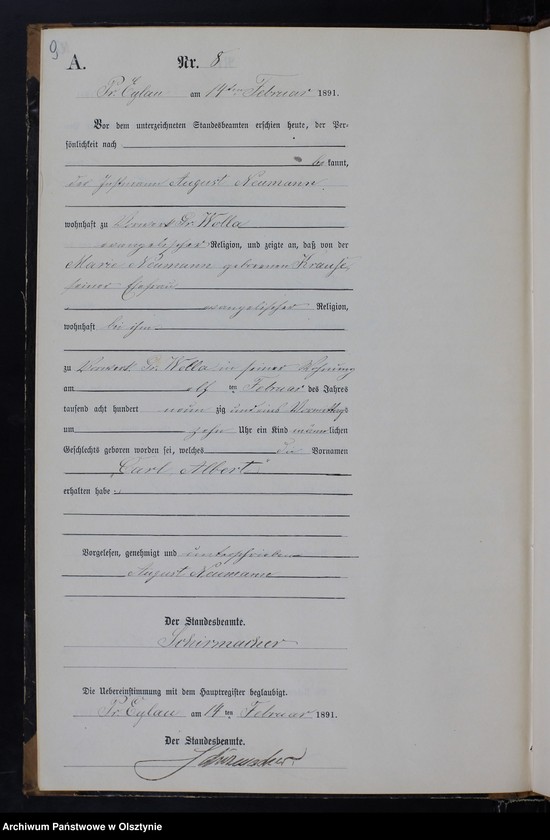 9
A.
Nr. 8
Pr. Eylau am 14ten Februar 1891.
Vor dem unterzeichneten Standesbeamten erschien heute, der Per-
sönlichkeit nach
bekannt,
der Instmann August Neumann
wohnhaft zu Vorwerk Gr. Wolla
evangelischer Religion, und zeigte an, daß von der
Marie Neumann geborenen Krause,
seiner Ehefrau
evangelischer Religion,
wohnhaft bei ihm
zu Vorwerk Gr. Wolla in seiner Wohnung
am elf ten Februar des Jahres
tausend acht hundert neun zig und eins Vormittags
um zehn Uhr ein Kind männlichen
Geschlechts geboren worden sei, welches die Vornamen
"Carl Albert"
erhalten habe
Vorgelesen, genehmigt und unterschrieben
August Neumann
Der Standesbeamte.
Schirmacher
Die Uebereinstimmung mit dem Hauptregister beglaubigt.
Pr. Eylau am 14 ten Februar 1891.
Der Standesbeamte.
Schirmacher
Archiwum Państwowe w Olsztynie